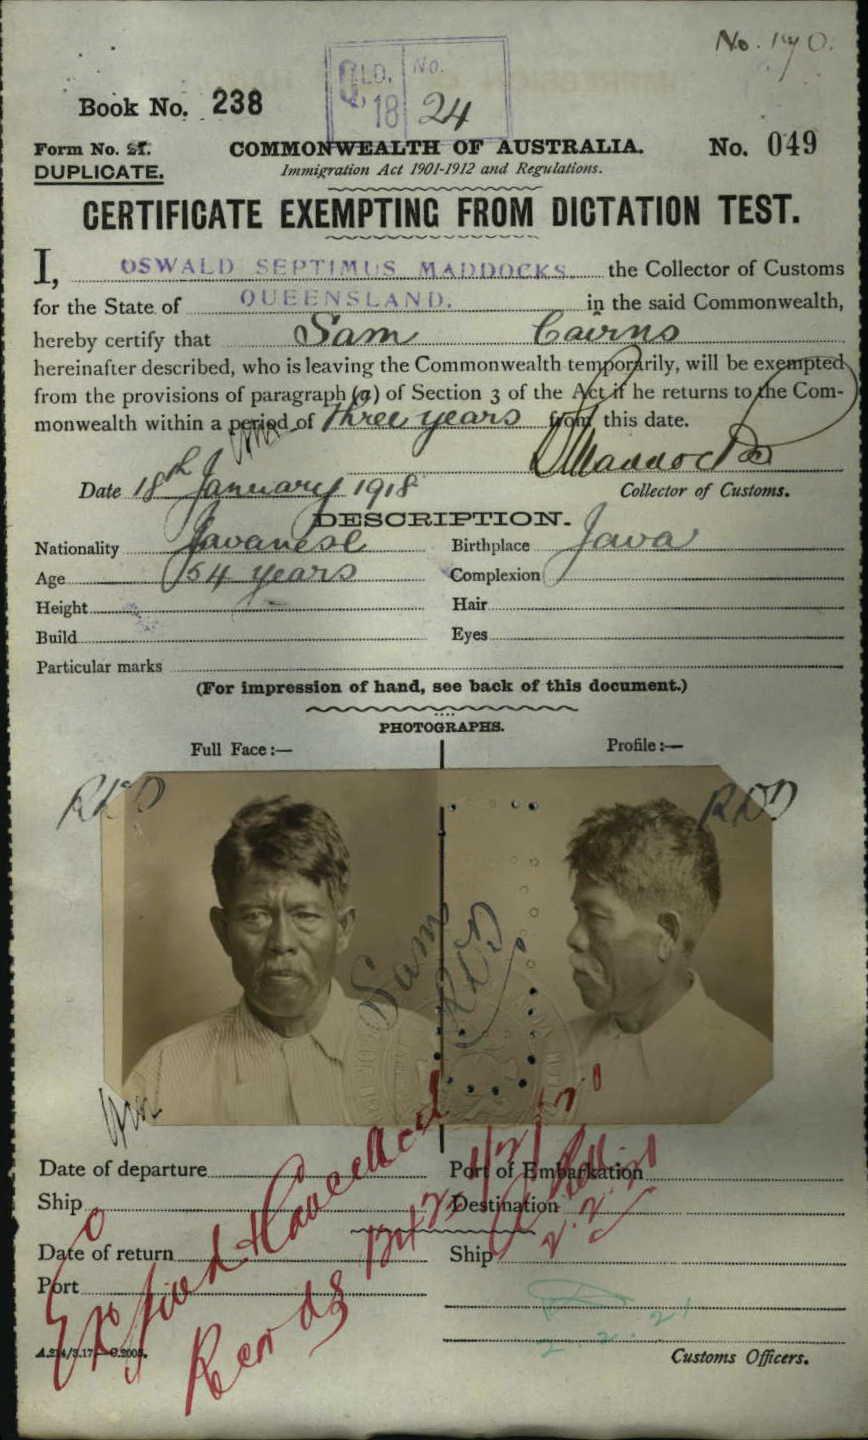 No. 190.
QLD. No.
18 24
Book No. 238
Form No. 21.
COMMONWEALTH OF AUSTRALIA.
No. 049
DUPLICATE.
Immigration Act 1901-1912 and Regulations.
CERTIFICATE EXEMPTING FROM DICTATION TEST.
I, OSWALD SEPTIMUS MADDOCKS the Collector of Customs
for the State of QUEENSLAND. in the said Commonwealth,
hereby certify that Sam Cairns
hereinafter described, who is leaving the Commonwealth temporarily, will be exempted
from the provisions of paragraph (a) of Section 3 of the Act if he returns to the Com-
monwealth within a period of three years from this date.
Maddocks
Date 18th January 1918
Collector of Customs.
DESCRIPTION.
Nationality Javanese
Birthplace Java
Age 54 years
Complexion
Height
Hair
Build
Eyes
Particular marks
(For impression of hand, see back of this document.)
PHOTOGRAPHS.
Full Face:—
Profile:—
RDD
RDD
Sam
RDD
Date of departure
Port of Embarkation
Ship
Destination
Date of return
Ship
Port
Expired & Cancelled
2.2.21
2.2.21
Customs Officers.